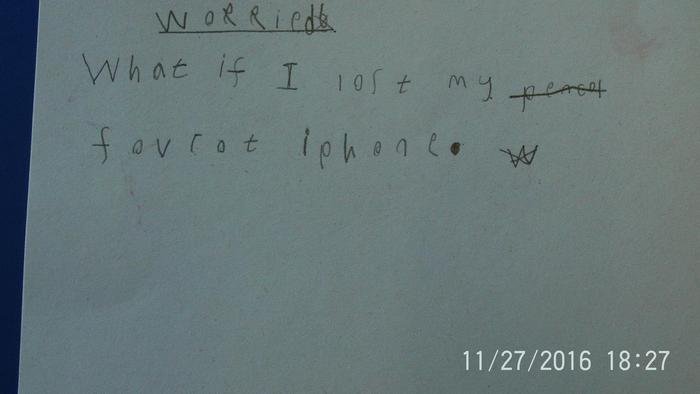 WORRied
What if I lost my pencel
favrot iphone.
11/27/2016 18:27